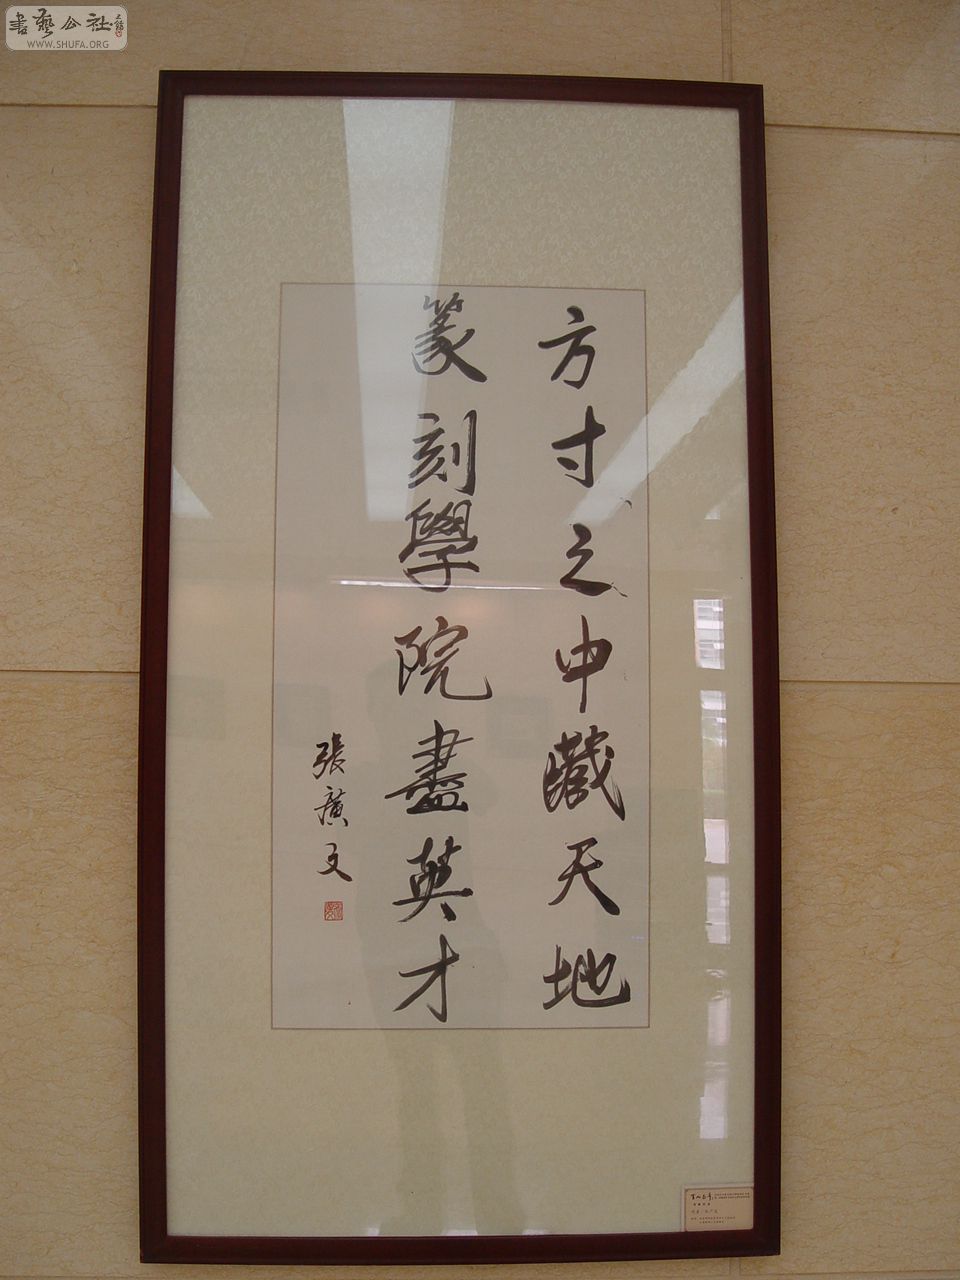 書藝公社
WWW.SHUFA.ORG
方寸之中藏天地
篆刻學院盡英才
張廣文